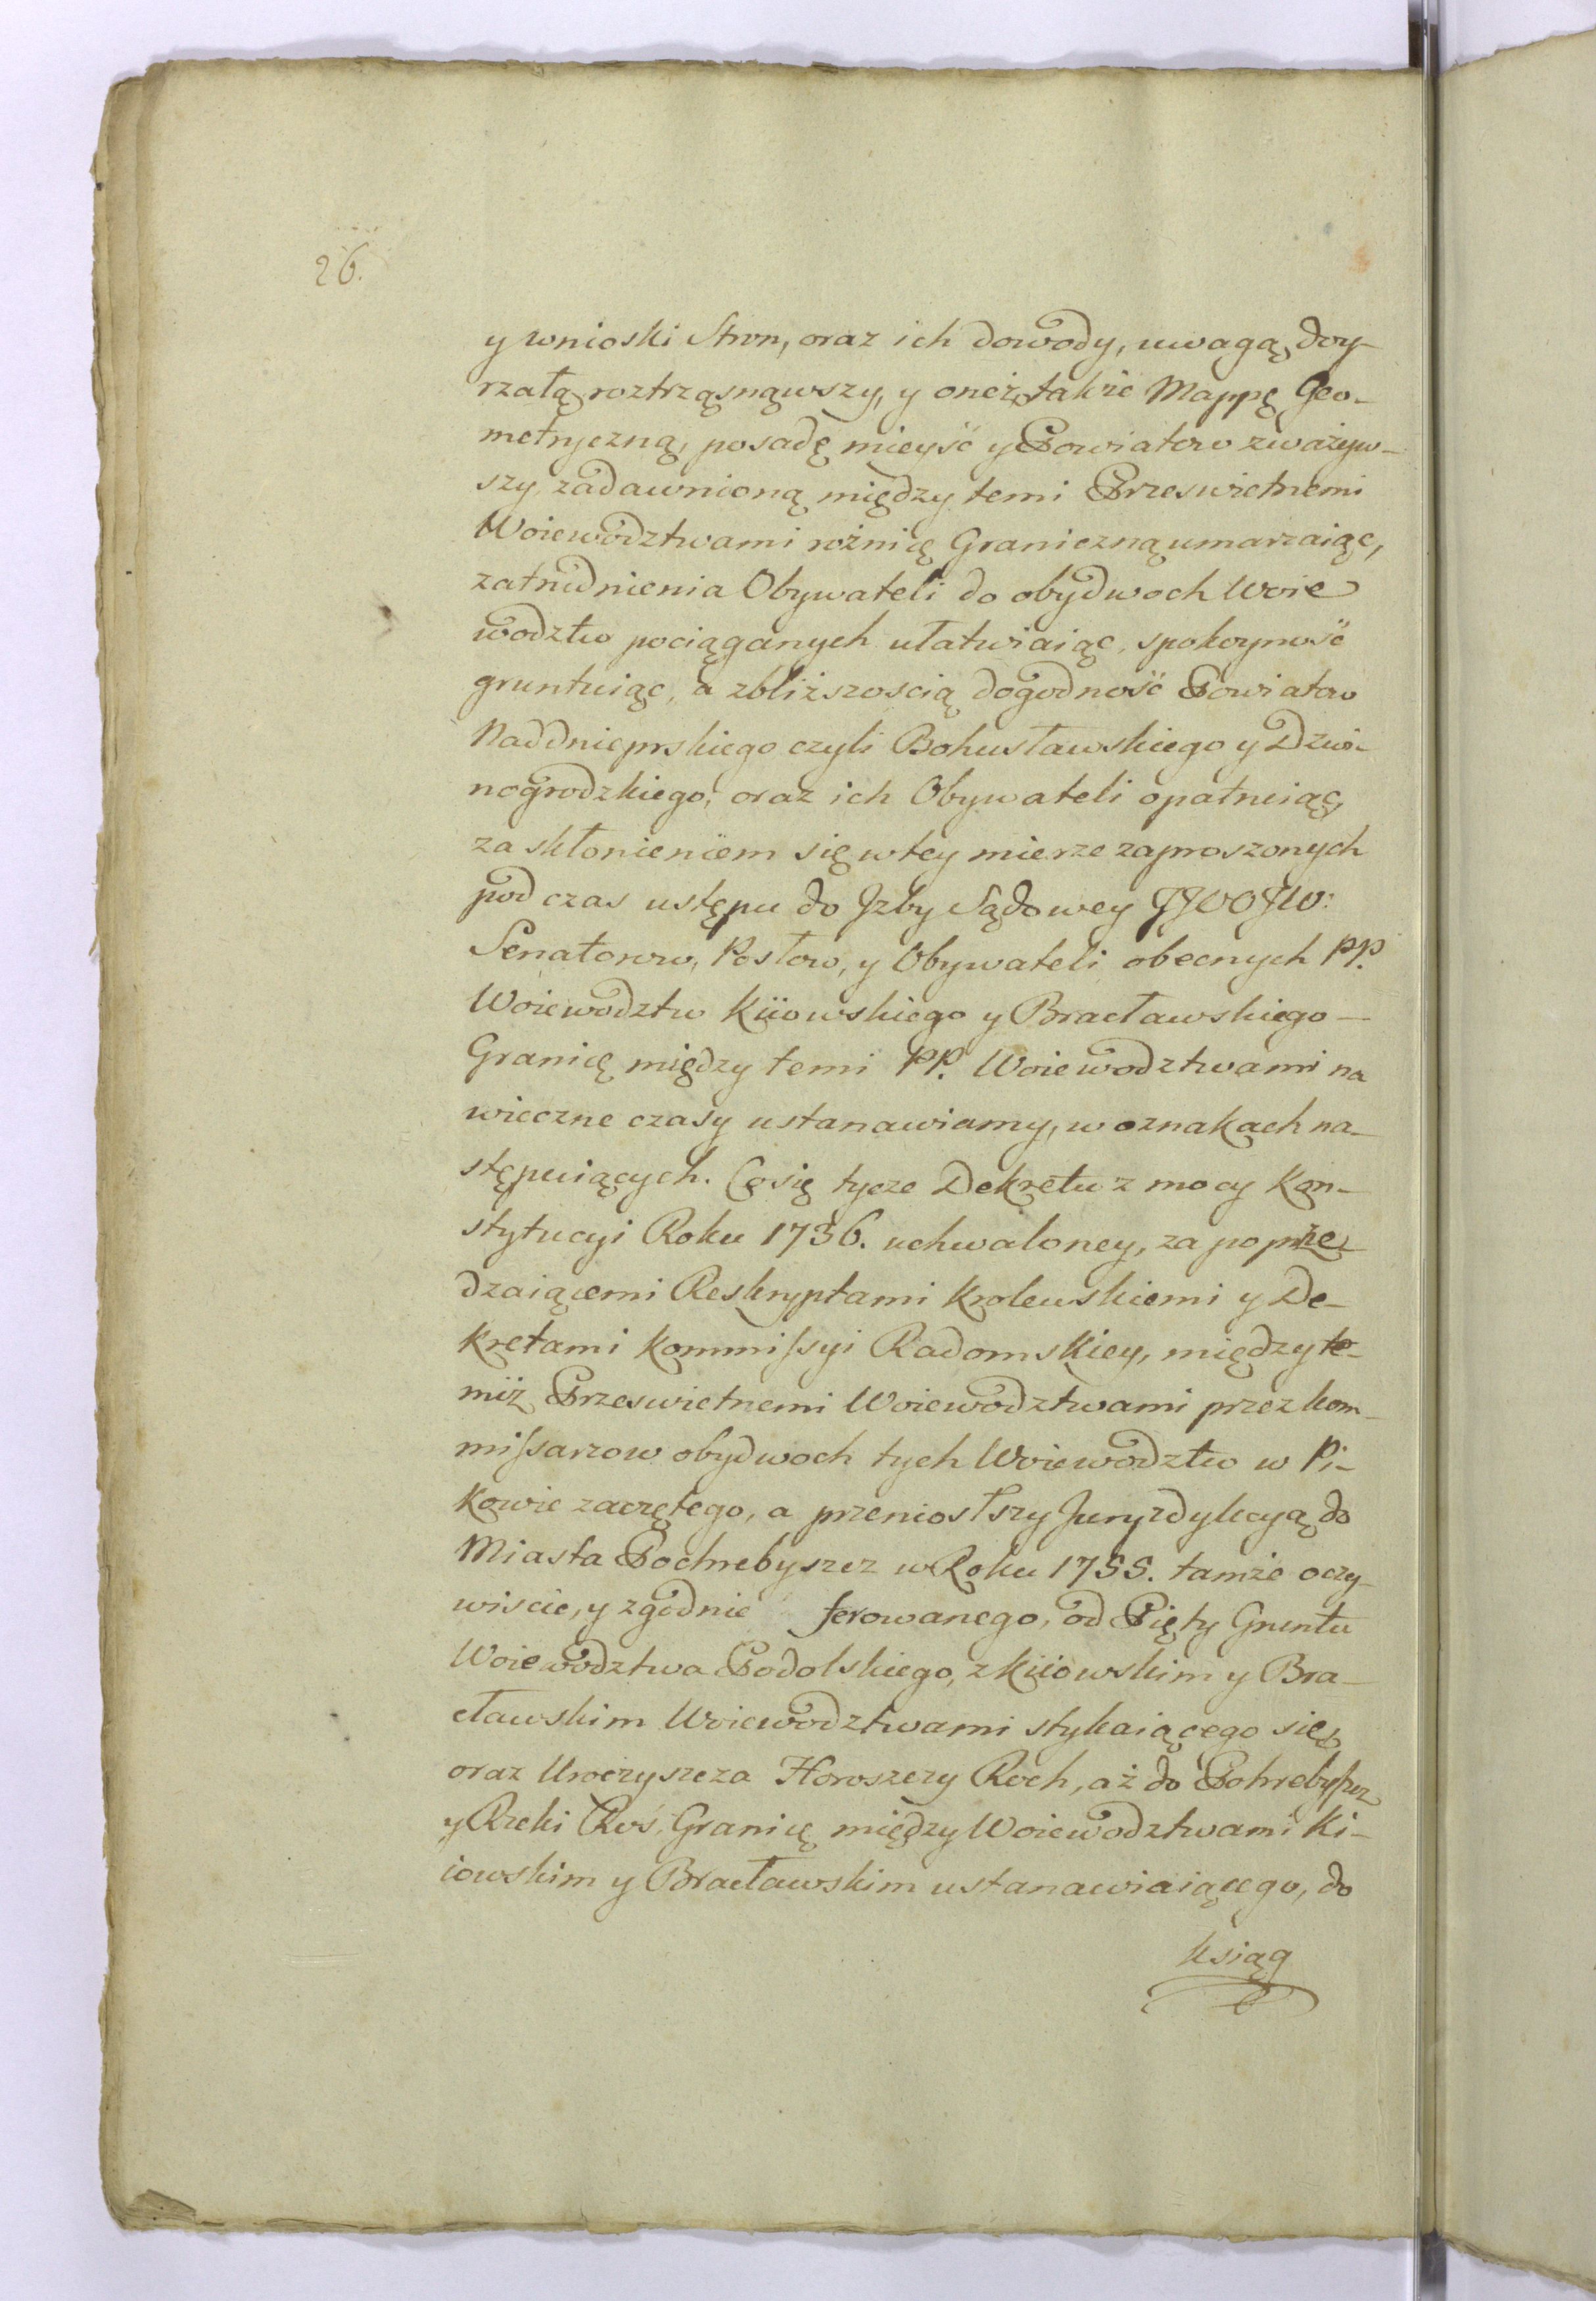 26.
y wnioski Stron, oraz ich dowody, uwagą doy-
rzałą roztrząsnąwszy, y oneż także Mappę Geo-
metryczną, posadę mieyść y Powiatow zważyw-
szy, zadawnioną między temi Prześwietnemi
Woiewodztwami rożnicę Graniczną umarzaiąc,
zatrudnienia Obywateli do obydwoch Woie
wodztw pociąganych ułatwiaiąc, spokoyność
gruntuiąc, a zbliższoscią dogodność Powiatow
Naddnieprskiego czyli Bohusławskiego y Dzwi-
nogrodzkiego, oraz ich Obywateli opatruiąc,
za skłonieniem się w tey mierze zaproszonych
pod czas ustępu do Jzby Sądowey JJWOJW:
Senatorow, Posłow, y Obywateli obecnych PP.
Woiewodztw Kiiowskiego y Bracławskiego —
Granicę między temi PP. Woiewodztwami na
wieczne czasy ustanawiamy, w oznakach na-
stępuiących. Co się tycze Dekretu z mocy Kon-
stytucyi Roku 1736. uchwaloney, za poprze
dzaiącemi Reskryptami Krolewskiemi y De-
kretami Kommissyi Radomskiey, między te-
miż Przeswietnemi Woiewodztwami przez kom-
missarzow obydwoch tych Woiewodztw w Pi-
kowie zaczętego, a przeniosłszy Juryzdykcyą do
Miasta Pochrebyszcz w Roku 1755. tamże oczy-
wiscie, y zgodnie ferowanego, od Pięty Gruntu
Woiewodztwa Podolskiego, z Kiiowskim y Bra-
cławskim Woiewodztwami stykaiącego się,
oraz Uroczyszcza Horoszczy Roch, aż do Pohrebyszcz
y Rzeki Roś, Granicę między Woiewodztwami Ki-
iowskim y Bracławskim ustanawiaiącego, do
ksiąg